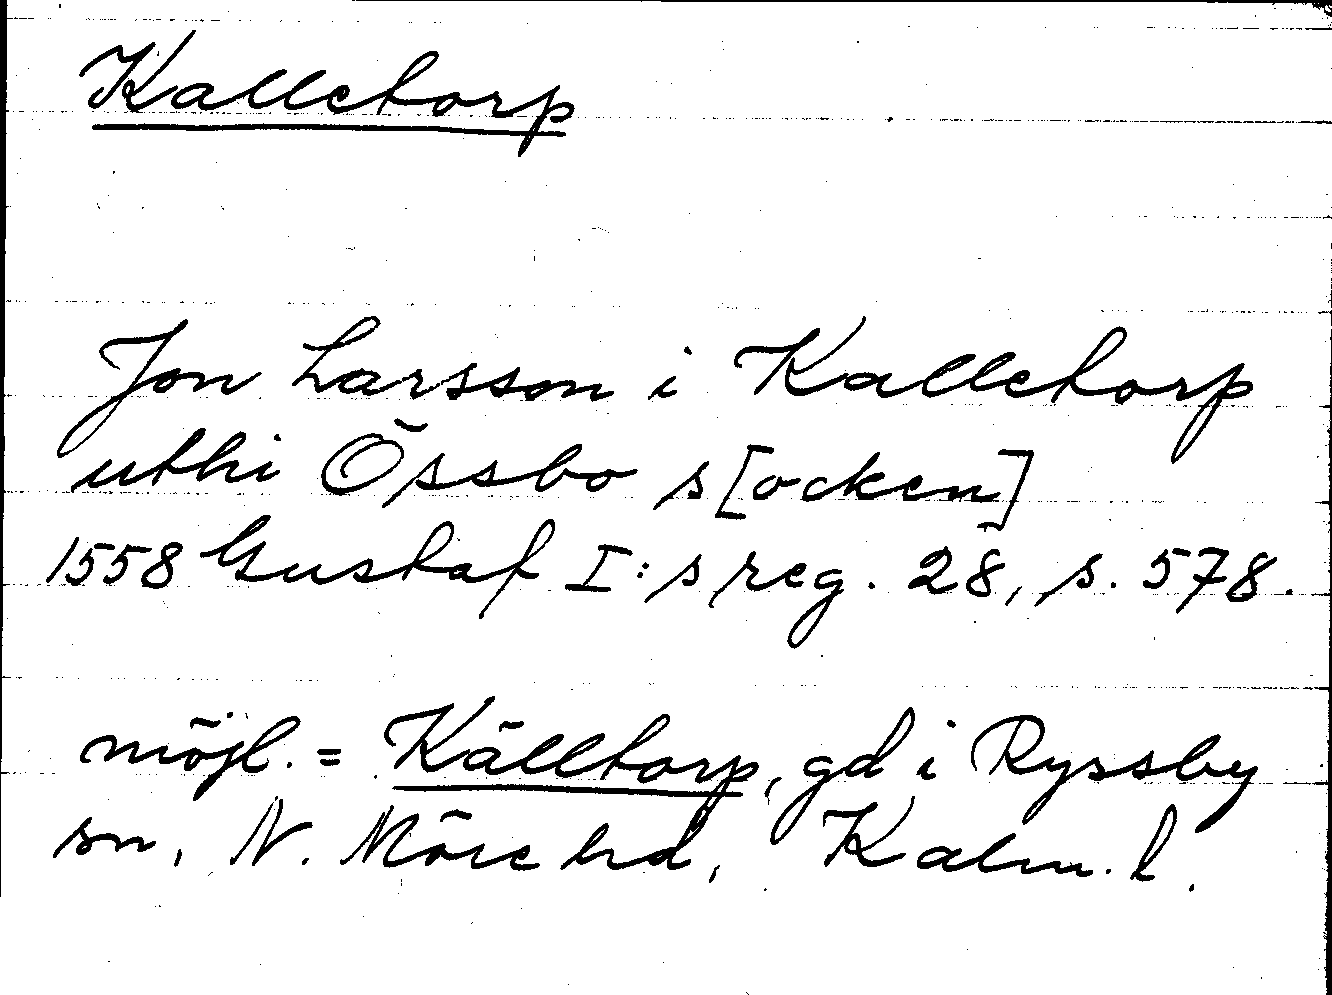 Kalletorp
Jon Larsson i Kalletorp
uthi Össbo s[ocken]
1558 Gustaf I:s reg. 28, s. 578.
möjl. = Källtorp, gd i Ryssby
sn, N. Möre hd, Kalm. l.